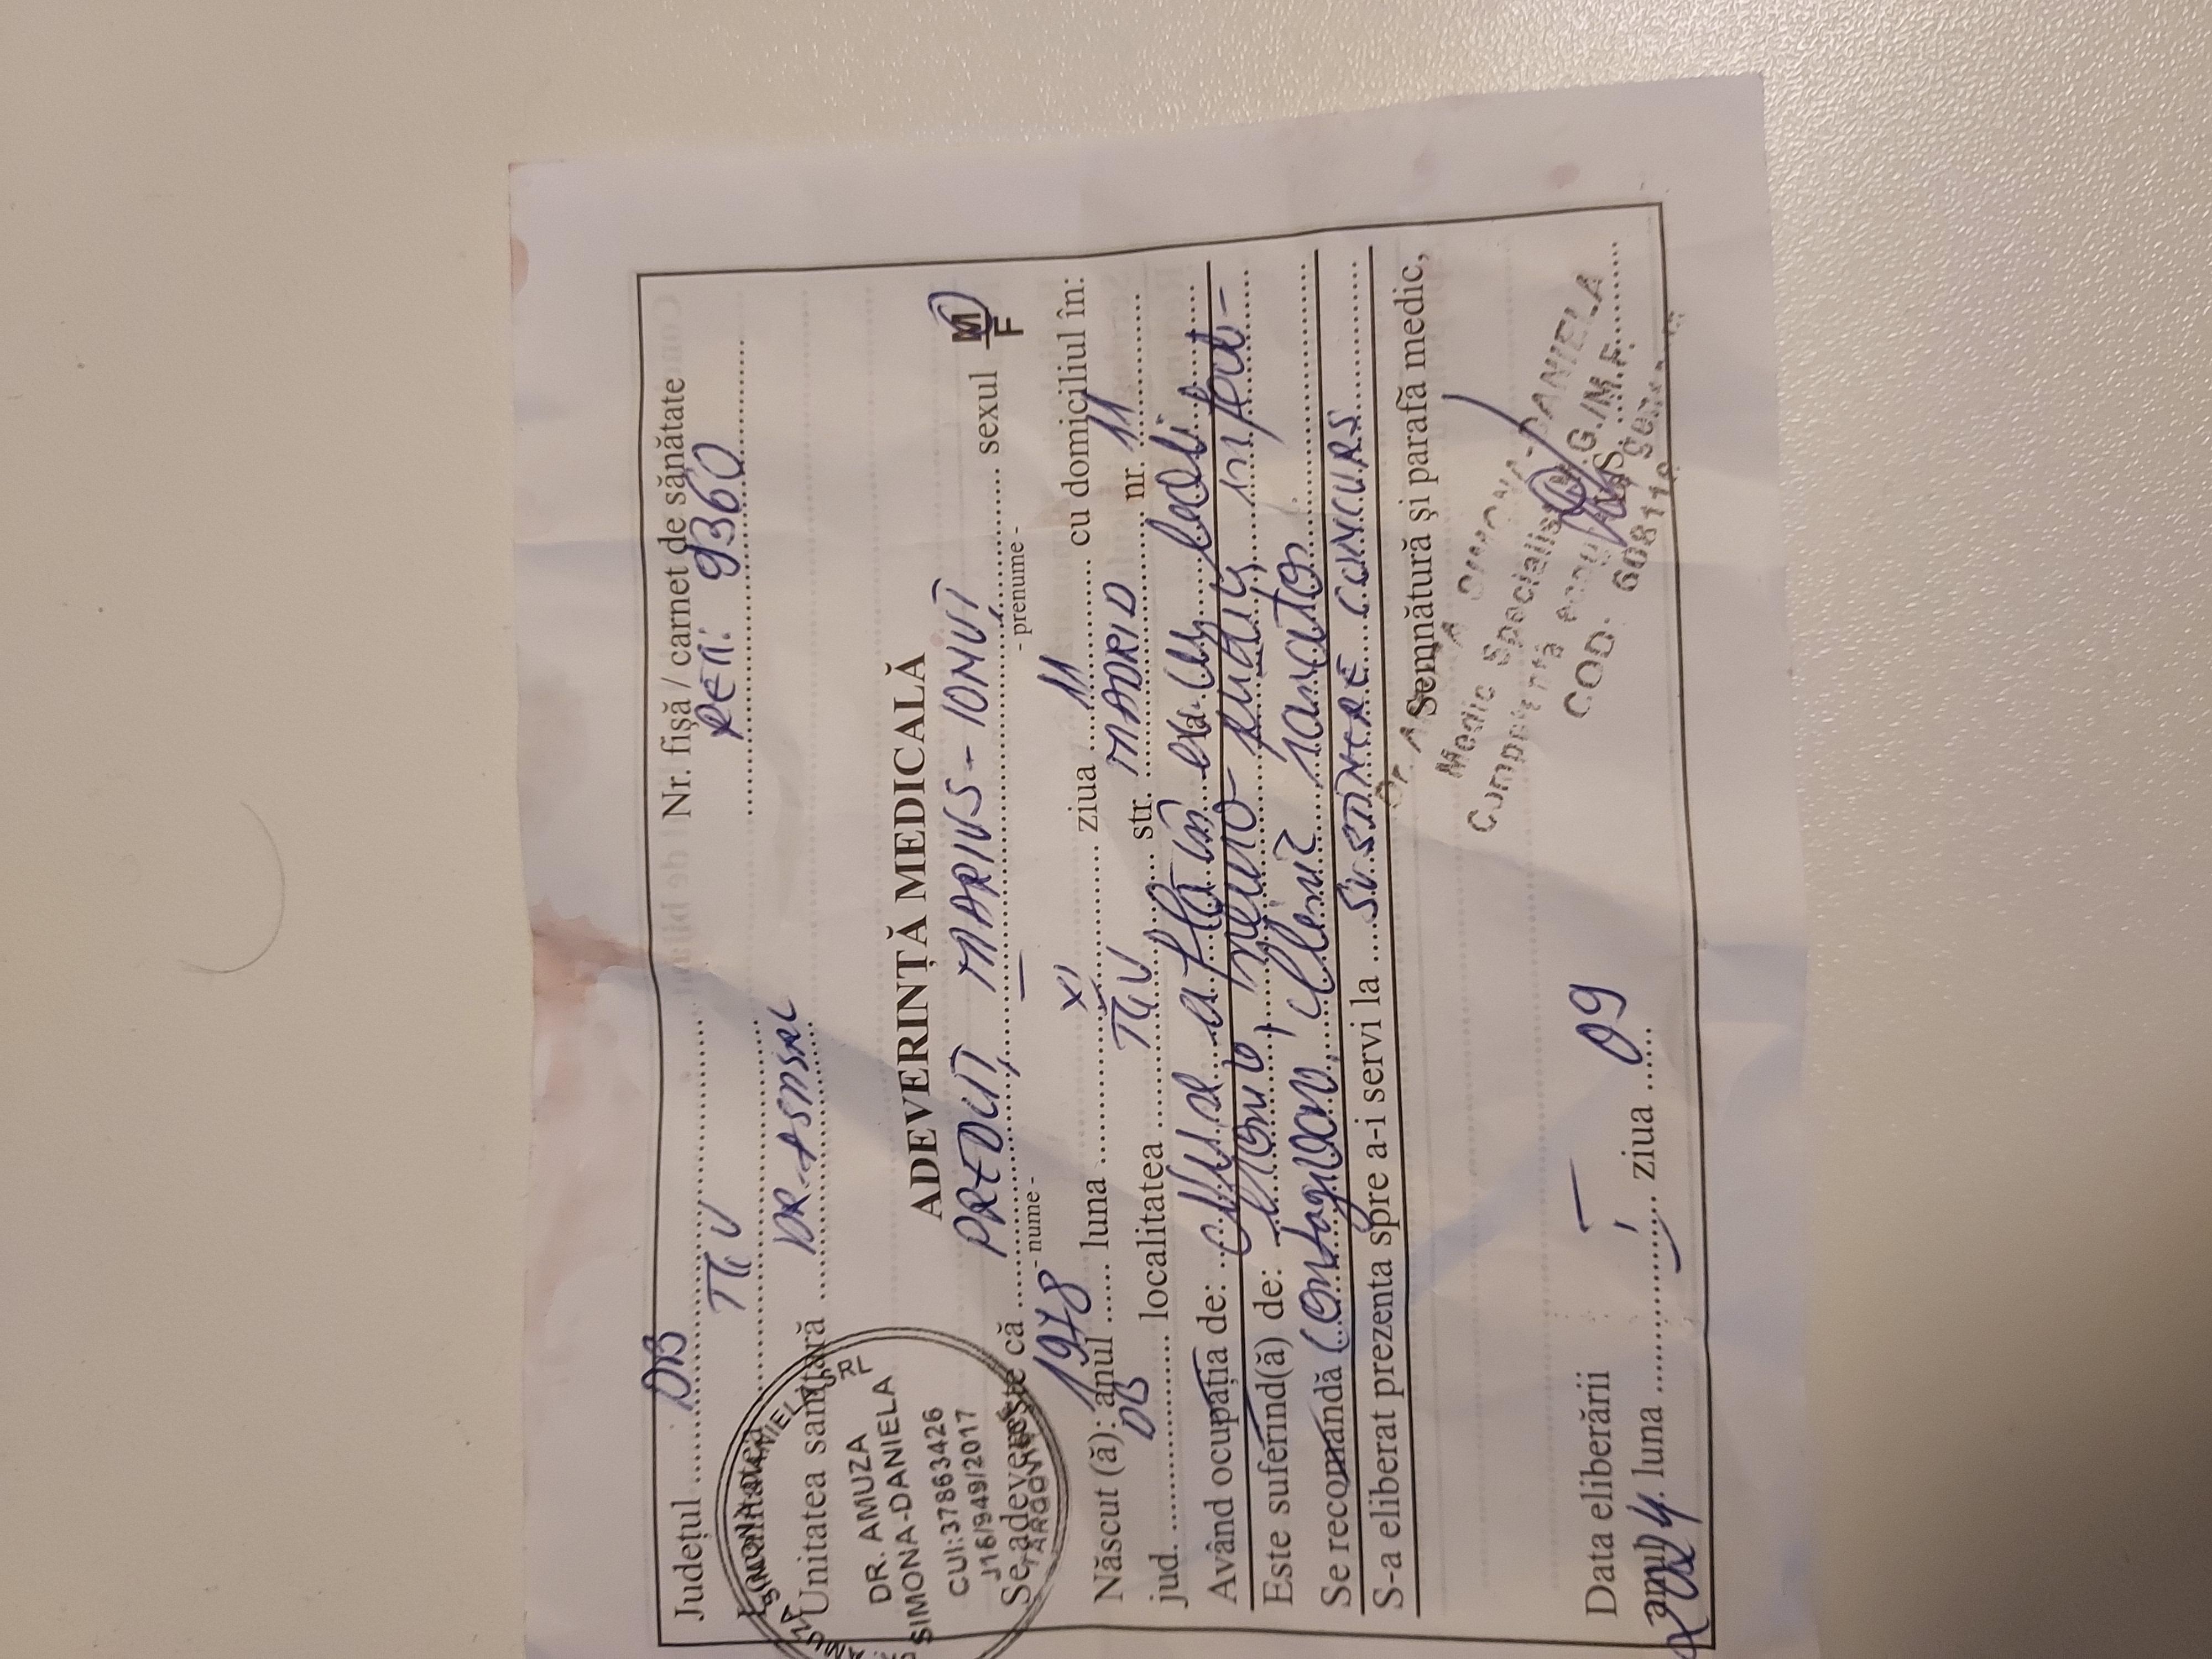 Județul ..... DB .....
Nr. fişă / carnet de sănătate
Localitatea ..... TGV .....
REG: 9360
Unitatea sanitară ..... DR. ASDSRL
DR. AMUZA SIMONA-DANIELA SRL
DR. AMUZA
SIMONA-DANIELA
CUI:37863426
J16/949/2017
TARGOVIȘTE
ADEVERINȚĂ MEDICALĂ
Se adevereşte că ..... PREDUȚ MARIUS-IONUȚ ..... sexul M/F
- nume - - prenume -
Născut (ă): anul 1978 luna XI ziua 11 cu domiciliul în:
jud. DB localitatea TGV str. MADRID nr. 11
Având ocupația de: Nu se află în ev. cu boli
Este suferind(ă) de: cronice, neuro-psihice, infecto-
Se recomandă contagioase. Clinic sănătos
S-a eliberat prezenta spre a-i servi la SUSTINERE CONCURS
Semnătură şi parafă medic,
Dr. AMUZA SIMONA-DANIELA
Medic Specialist M.G./M.F.
Competență ecografie generală
COD:
L.S.
Data eliberării
anul 2024 luna I ziua 09